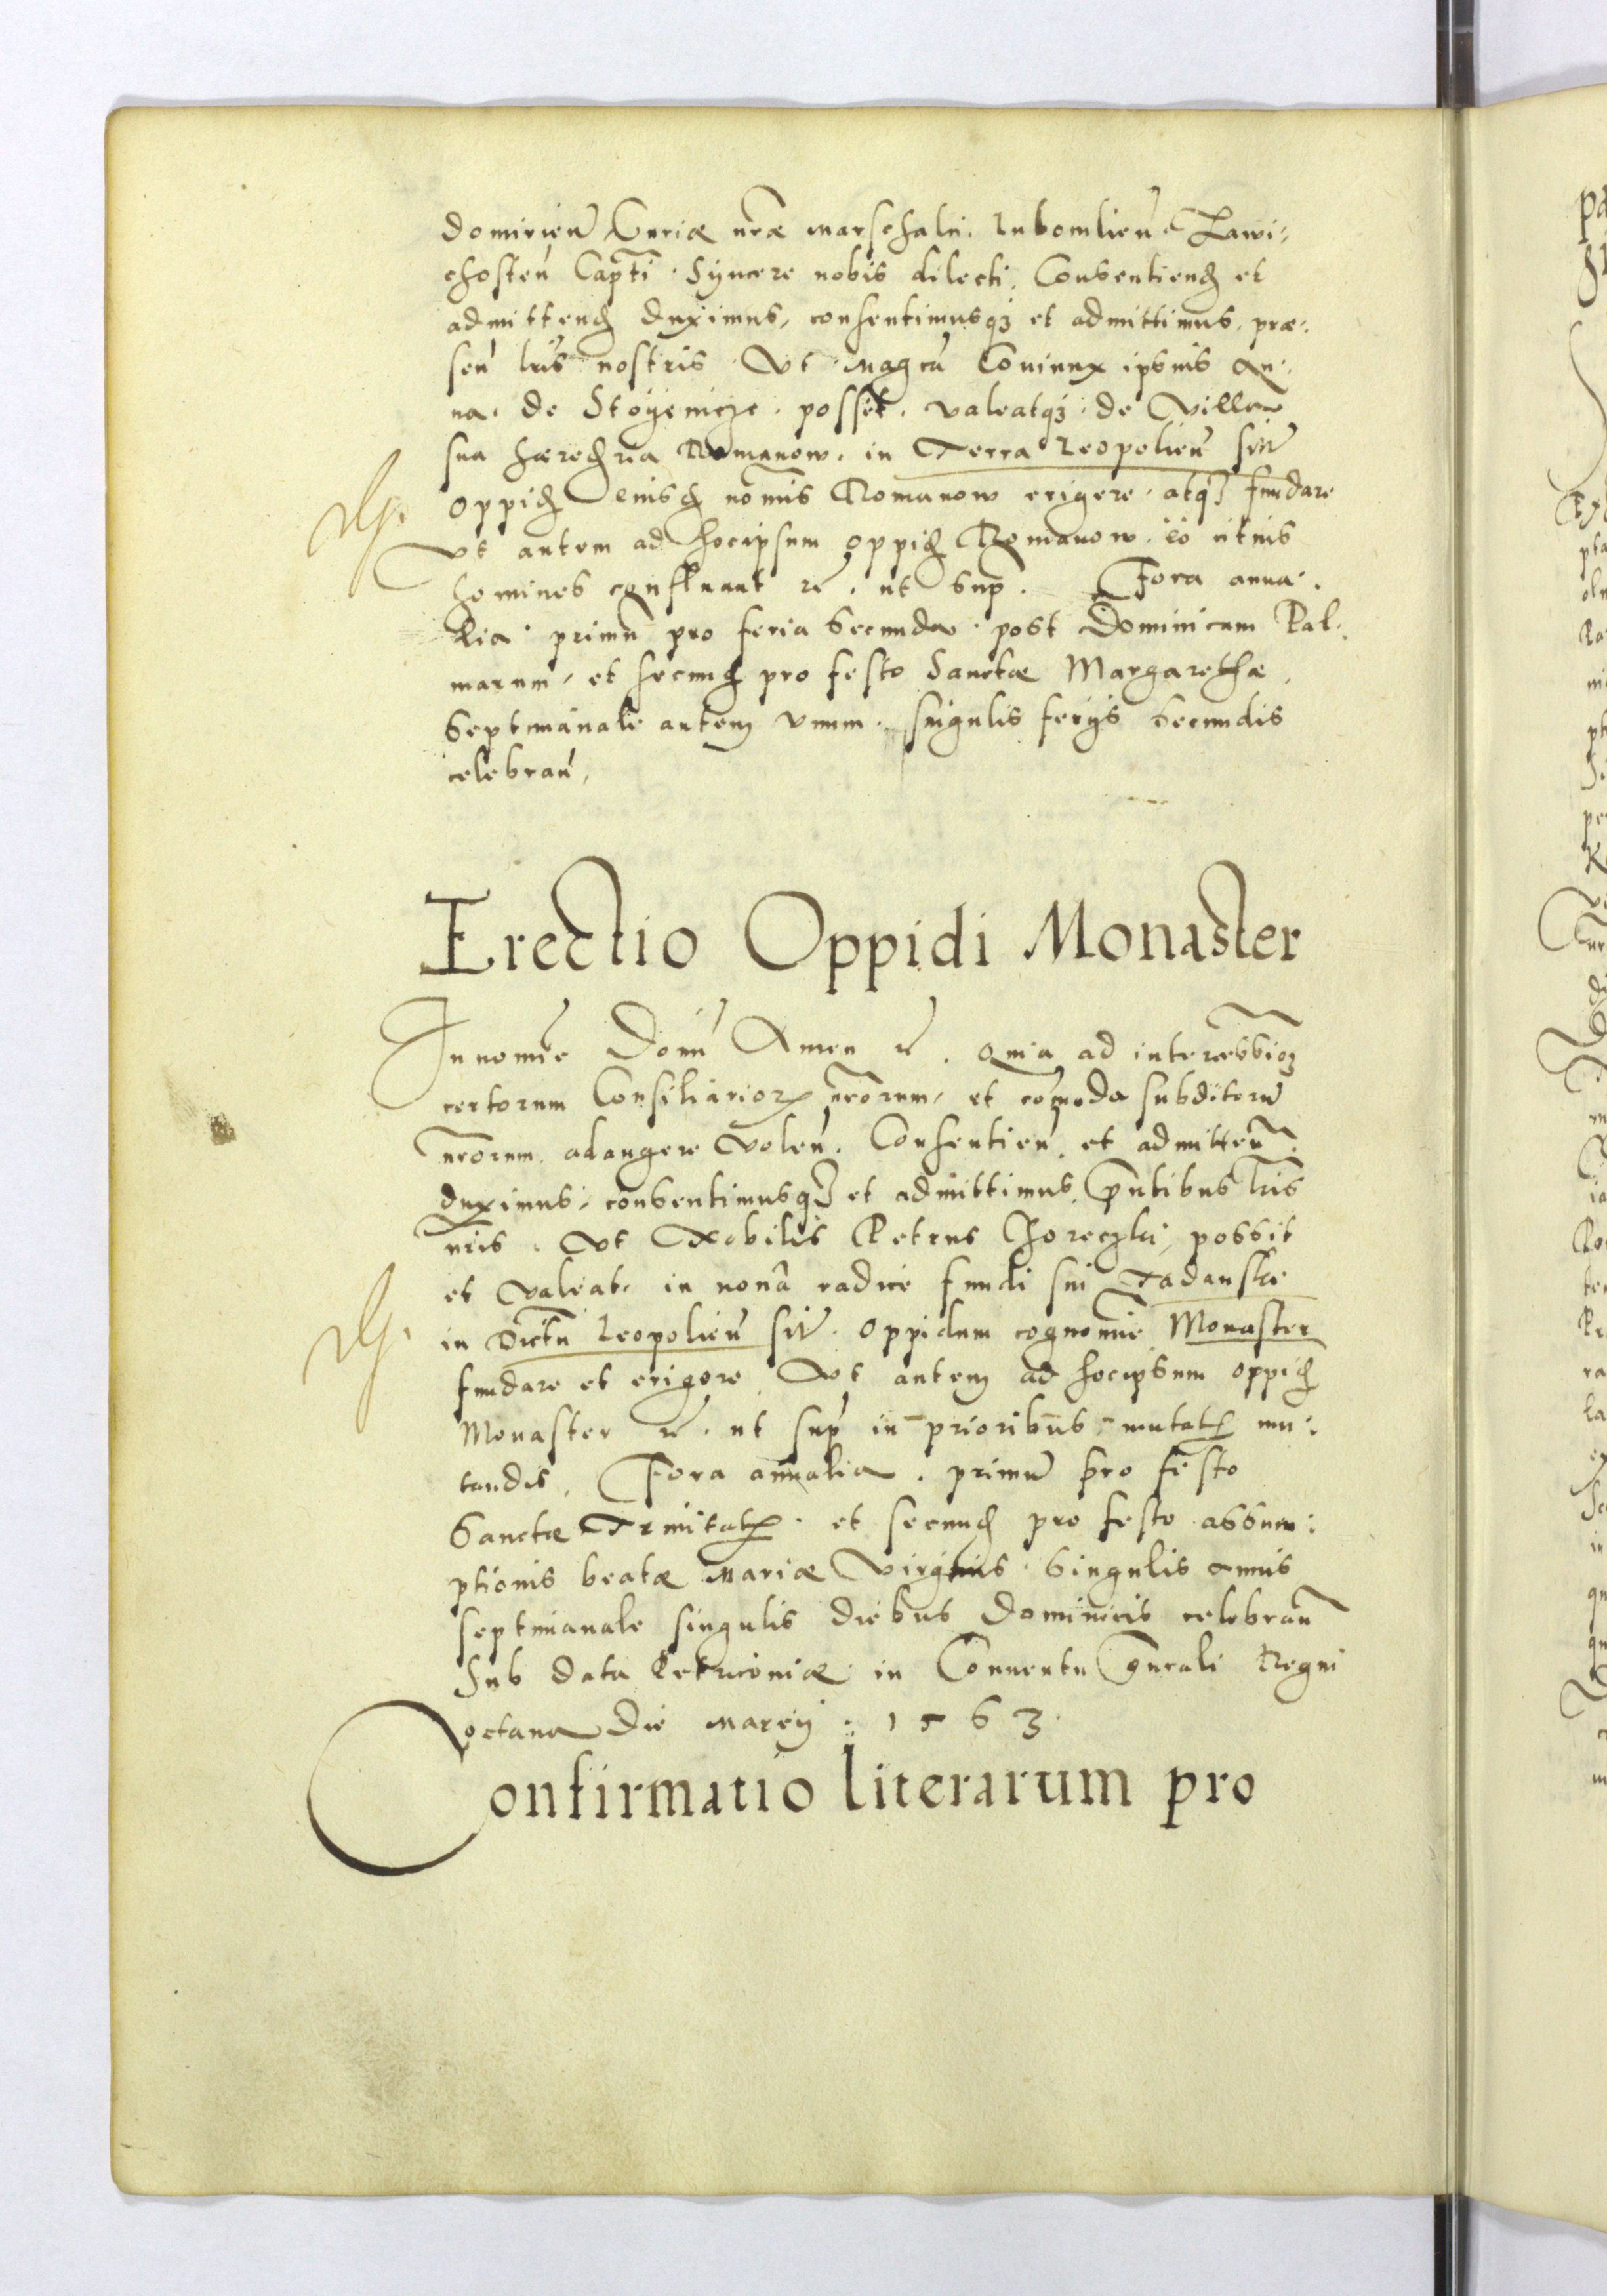 domirień Curiæ nr̃æ Marschalci. Lubomlień Zawi-
chosteń Capt̃i. Syncere nobis dilecti. Consentiend et
admittend duximus, consentimusqȝ et admittimus, præ-
seń lr̃is nostris. Ut Magca Coniunx ipsius An-
na. de Stoyenicze. posset. valeatqȝ. de Villa
sua hæredria Romanow. in Terra Leopolień sit̃
oppid eiusd nom̃is Romanow erigere. atqȝ fundare
Ut autem ad hocipsum oppid Romanow. eo
homines confluant etc. ut sup. Fora annua-
lia. primũ pro feria secunda. post Dominicam Pal-
marum, et secund pro festo Sanctæ Margarethæ,
Septimanale autem unum. singulis ferijs secundis
celebrań,
Erectio Oppidi Monaster
In nom̃e Dom̃ Amen etc. Quia ad
certorum Consiliarioꝝ nr̃orum, et com̃oda subditorũ
nr̃orum. adaugere voleń. Consentień. et admitteñ.
duximus, consentimusqȝ et admittimus, pñtibus lr̃is
nr̃is. Ut Nobilis Petrus Choreczki, possit
et valeat. in nona radice fundi sui Tadanskie
in Distctu Leopolień sit̃. oppidum cognom̃ie Monaster
fundare et erigere Ut autem ad hocipsum oppid
Monaster etc. ut sup in prioribus mutatꝭ mu-
tandis, Fora annalia. primũ pro festo
Sanctæ Trinitatꝭ. et secund pro festo assum-
ptionis beatæ Mariæ Virginis. Singulis annis
septimanale singulis diebus Dominicis celebrañ
Sub data Petricoviæ in Conventu gñrali Regni
octava die Marcij. 1563.
Confirmatio literarum pro